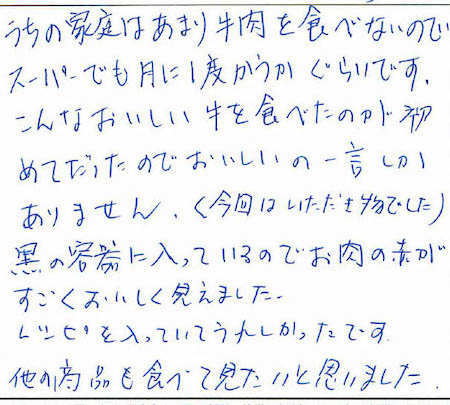 うちの家庭はあまり牛肉を食べないので
スーパーでも月に1度かうかぐらいです。
こんなおいしい牛を食べたのが初
めてだったのでおいしいの一言しか
ありません。(今回はいただき物でした)
黒の容器に入っているのでお肉の赤が
すごくおいしく見えました。
レシピも入っていてうれしかったです。
他の商品も食べて見たいと思いました。